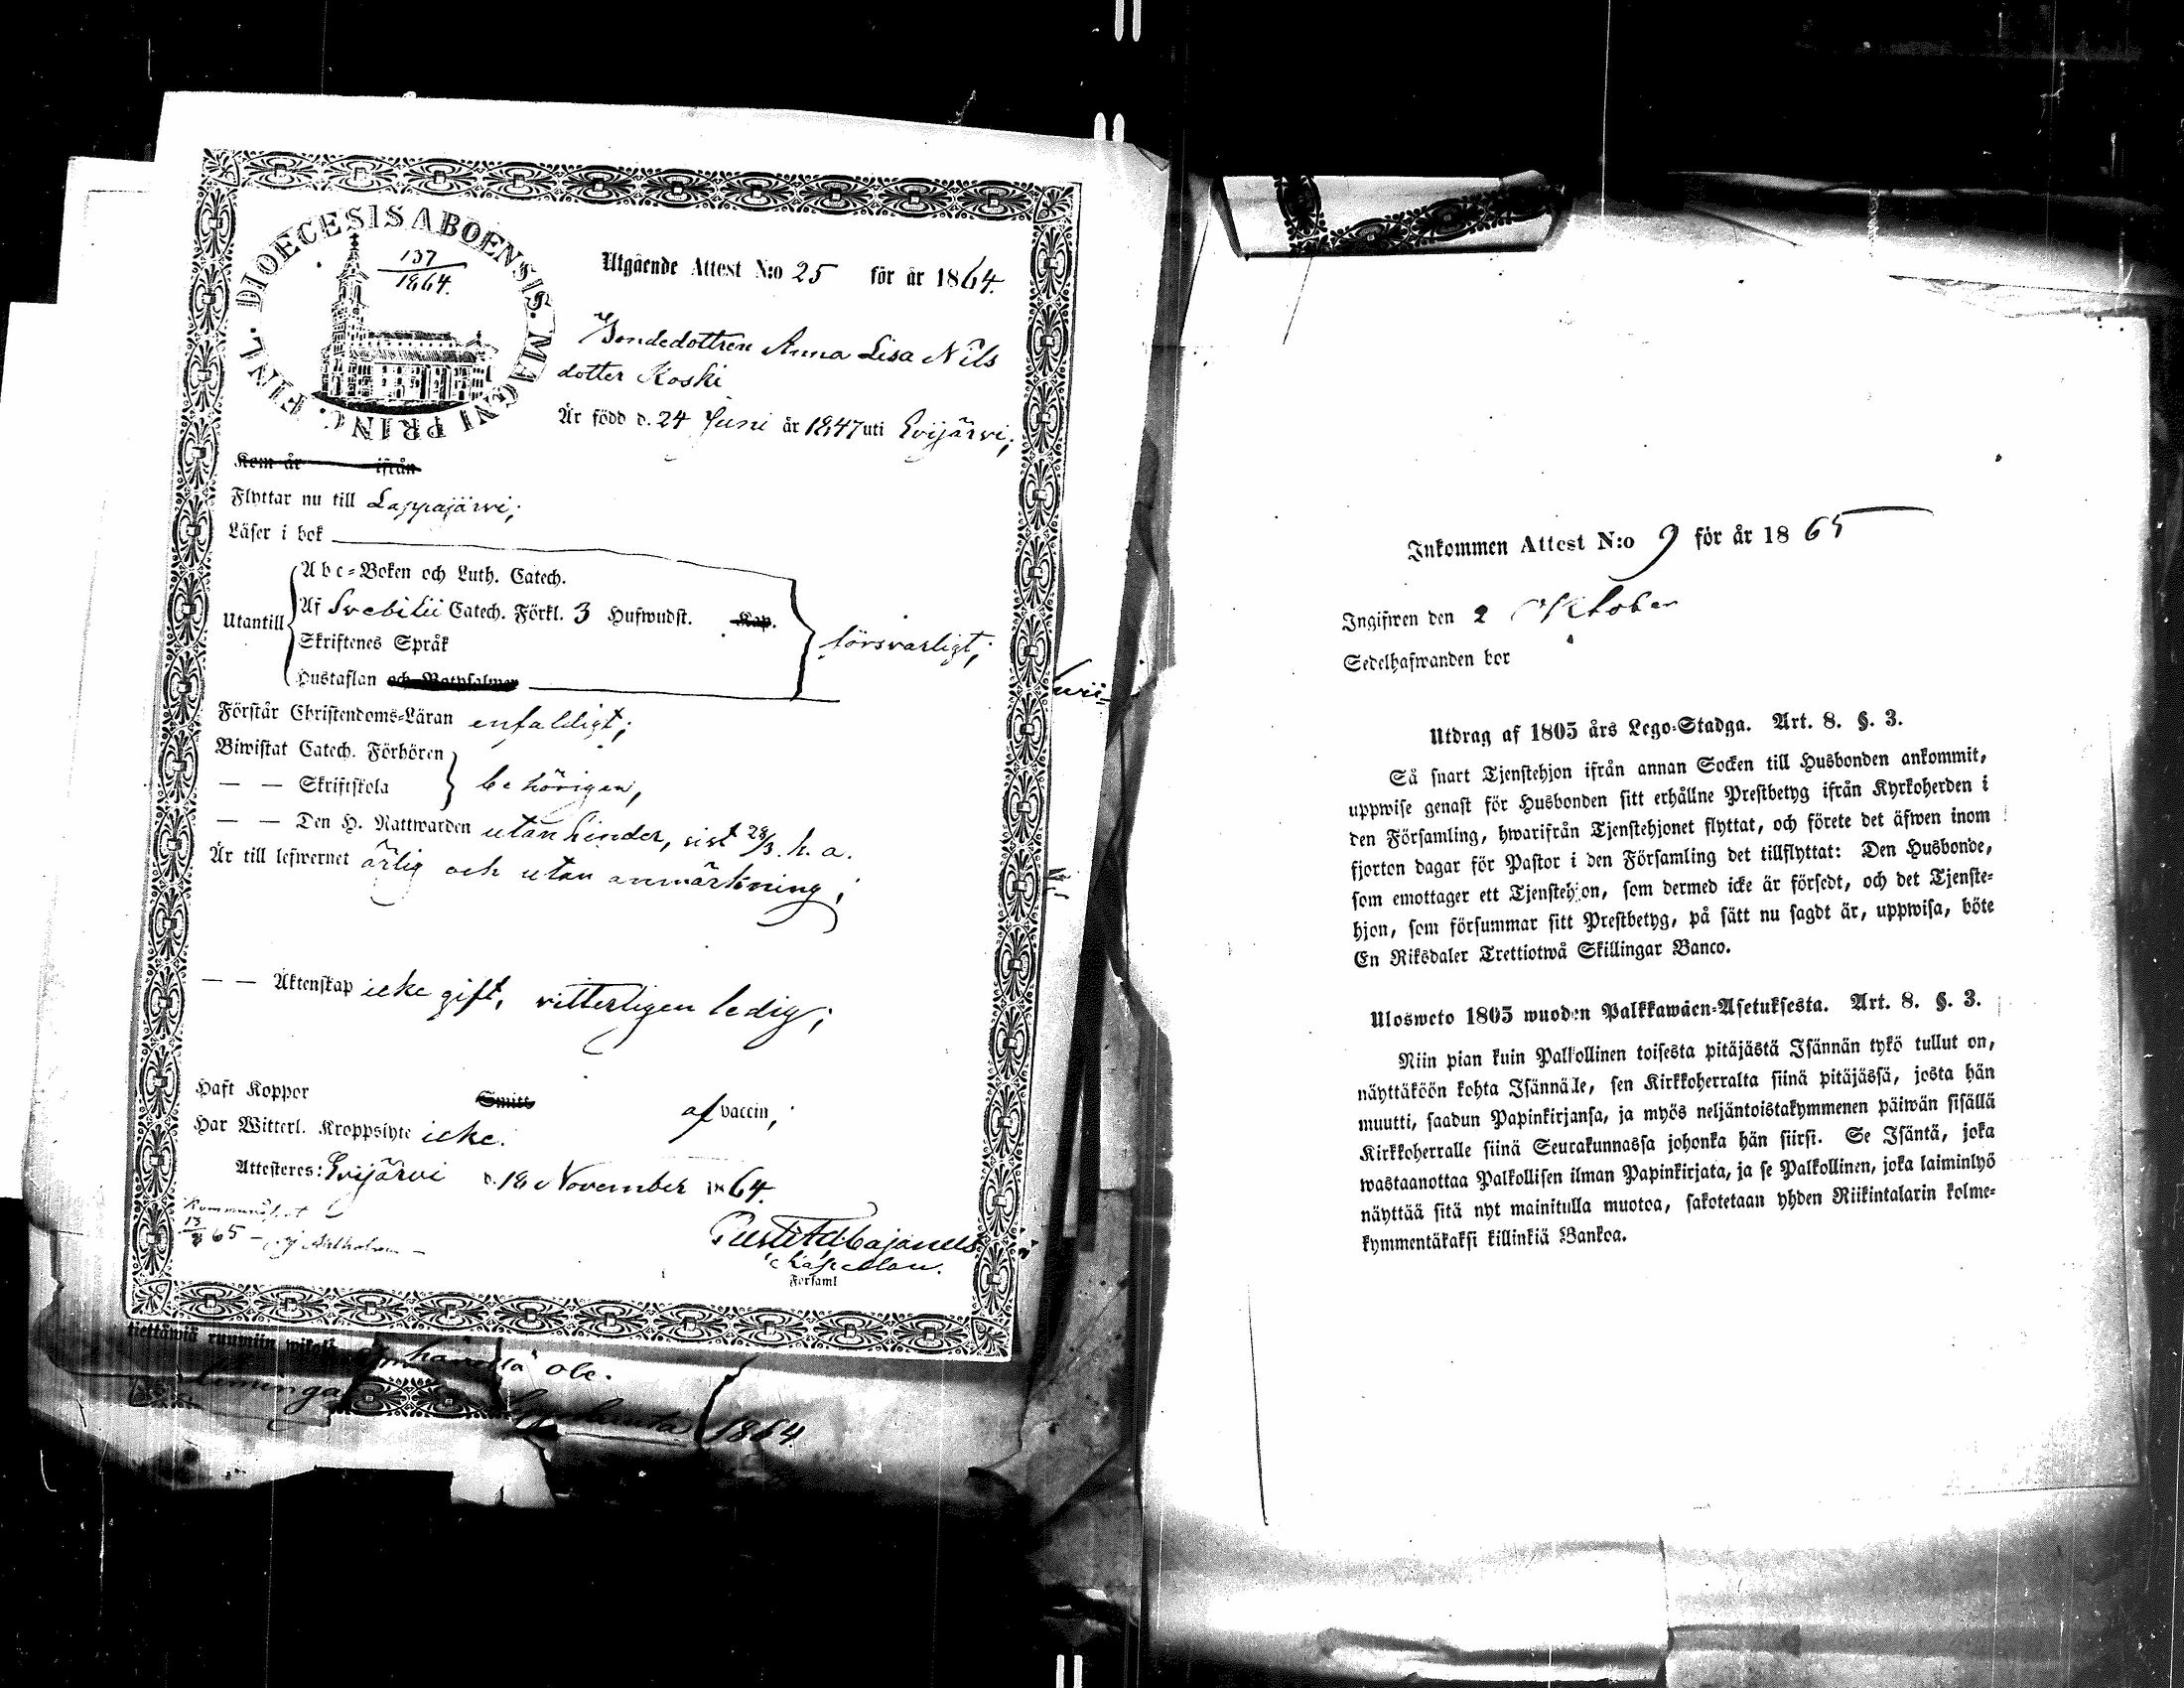 DIOECESIS ABOENSIS. MAGNI PRINC. FINL.
137
1864.
Utgående Attest N:o 25 för år 1864.
Bondedottren Anna Lisa Nils
dotter Koski
Är född d. 24 Juni år 1847 uti Evijärvi;
Kom år ifrån
Flyttar nu till Lappajärvi;
Läser i bok
Utantill
Abc-Boken och Luth. Catech.
Af Svebilii Catech. Förkl. 3 Hufwudst. Kap.
Skriftenes Språk
Hustaflan och Botpsalmer
försvarligt;
Förstår Christendoms-Läran enfaldigt;
Biwistat Catech. Förhören
— — Skriftskola
behörigen,
— — Den H. Nattwarden utan hinder, sist 28/3. h. a.
Är till lefwernet ärlig och utan anmärkning;
— — Äktenskap icke gift, vitterligen ledig;
Haft Koppor Smitt af vaccin;
Har Witterl. Kroppslyte icke.
Attesteres: Evijärvi d. 18 November 1864.
Gust Ad Cajanus
Kapellan.
Församl
65
tiettäwiä ruumiin
ole.
Liminga
1864.
Inkommen Attest N:o 9 för år 1865
Ingifwen den 2 Oktober
Sedelhafwanden bor
Utdrag af 1805 års Lego-Stadga. Art. 8. §. 3.
Så snart Tjenstehjon ifrån annan Socken till Husbonden ankommit,
uppwise genast för Husbonden sitt erhållne Prestbetyg ifrån Kyrkoherden i
den Församling, hwarifrån Tjenstehjonet flyttat, och förete det äfwen inom
fjorton dagar för Pastor i den Församling det tillflyttat: Den Husbonde,
som emottager ett Tjenstehjon, som dermed icke är försedt, och det Tjenste-
hjon, som försummar sitt Prestbetyg, på sätt nu sagdt är, uppwisa, böte
En Riksdaler Trettiotwå Skillingar Banco.
Ulosweto 1805 wuoden Palkkawäen-Asetuksesta. Art. 8. §. 3.
Niin pian kuin Palkollinen toisesta pitäjästä Isännän tykö tullut on,
näyttäköön kohta Isännälle, sen Kirkkoherralta siinä pitäjässä, josta hän
muutti, saadun Papinkirjansa, ja myös neljäntoistakymmenen päiwän sisällä
Kirkkoherralle siinä Seurakunnassa johonka hän siirsi. Se Isäntä, joka
wastaanottaa Palkollisen ilman Papinkirjata, ja se Palkollinen, joka laiminlyö
näyttää sitä nyt mainitulla muotoa, sakotetaan yhden Riikintalarin kolme-
kymmentäkaksi killinkiä Bankoa.